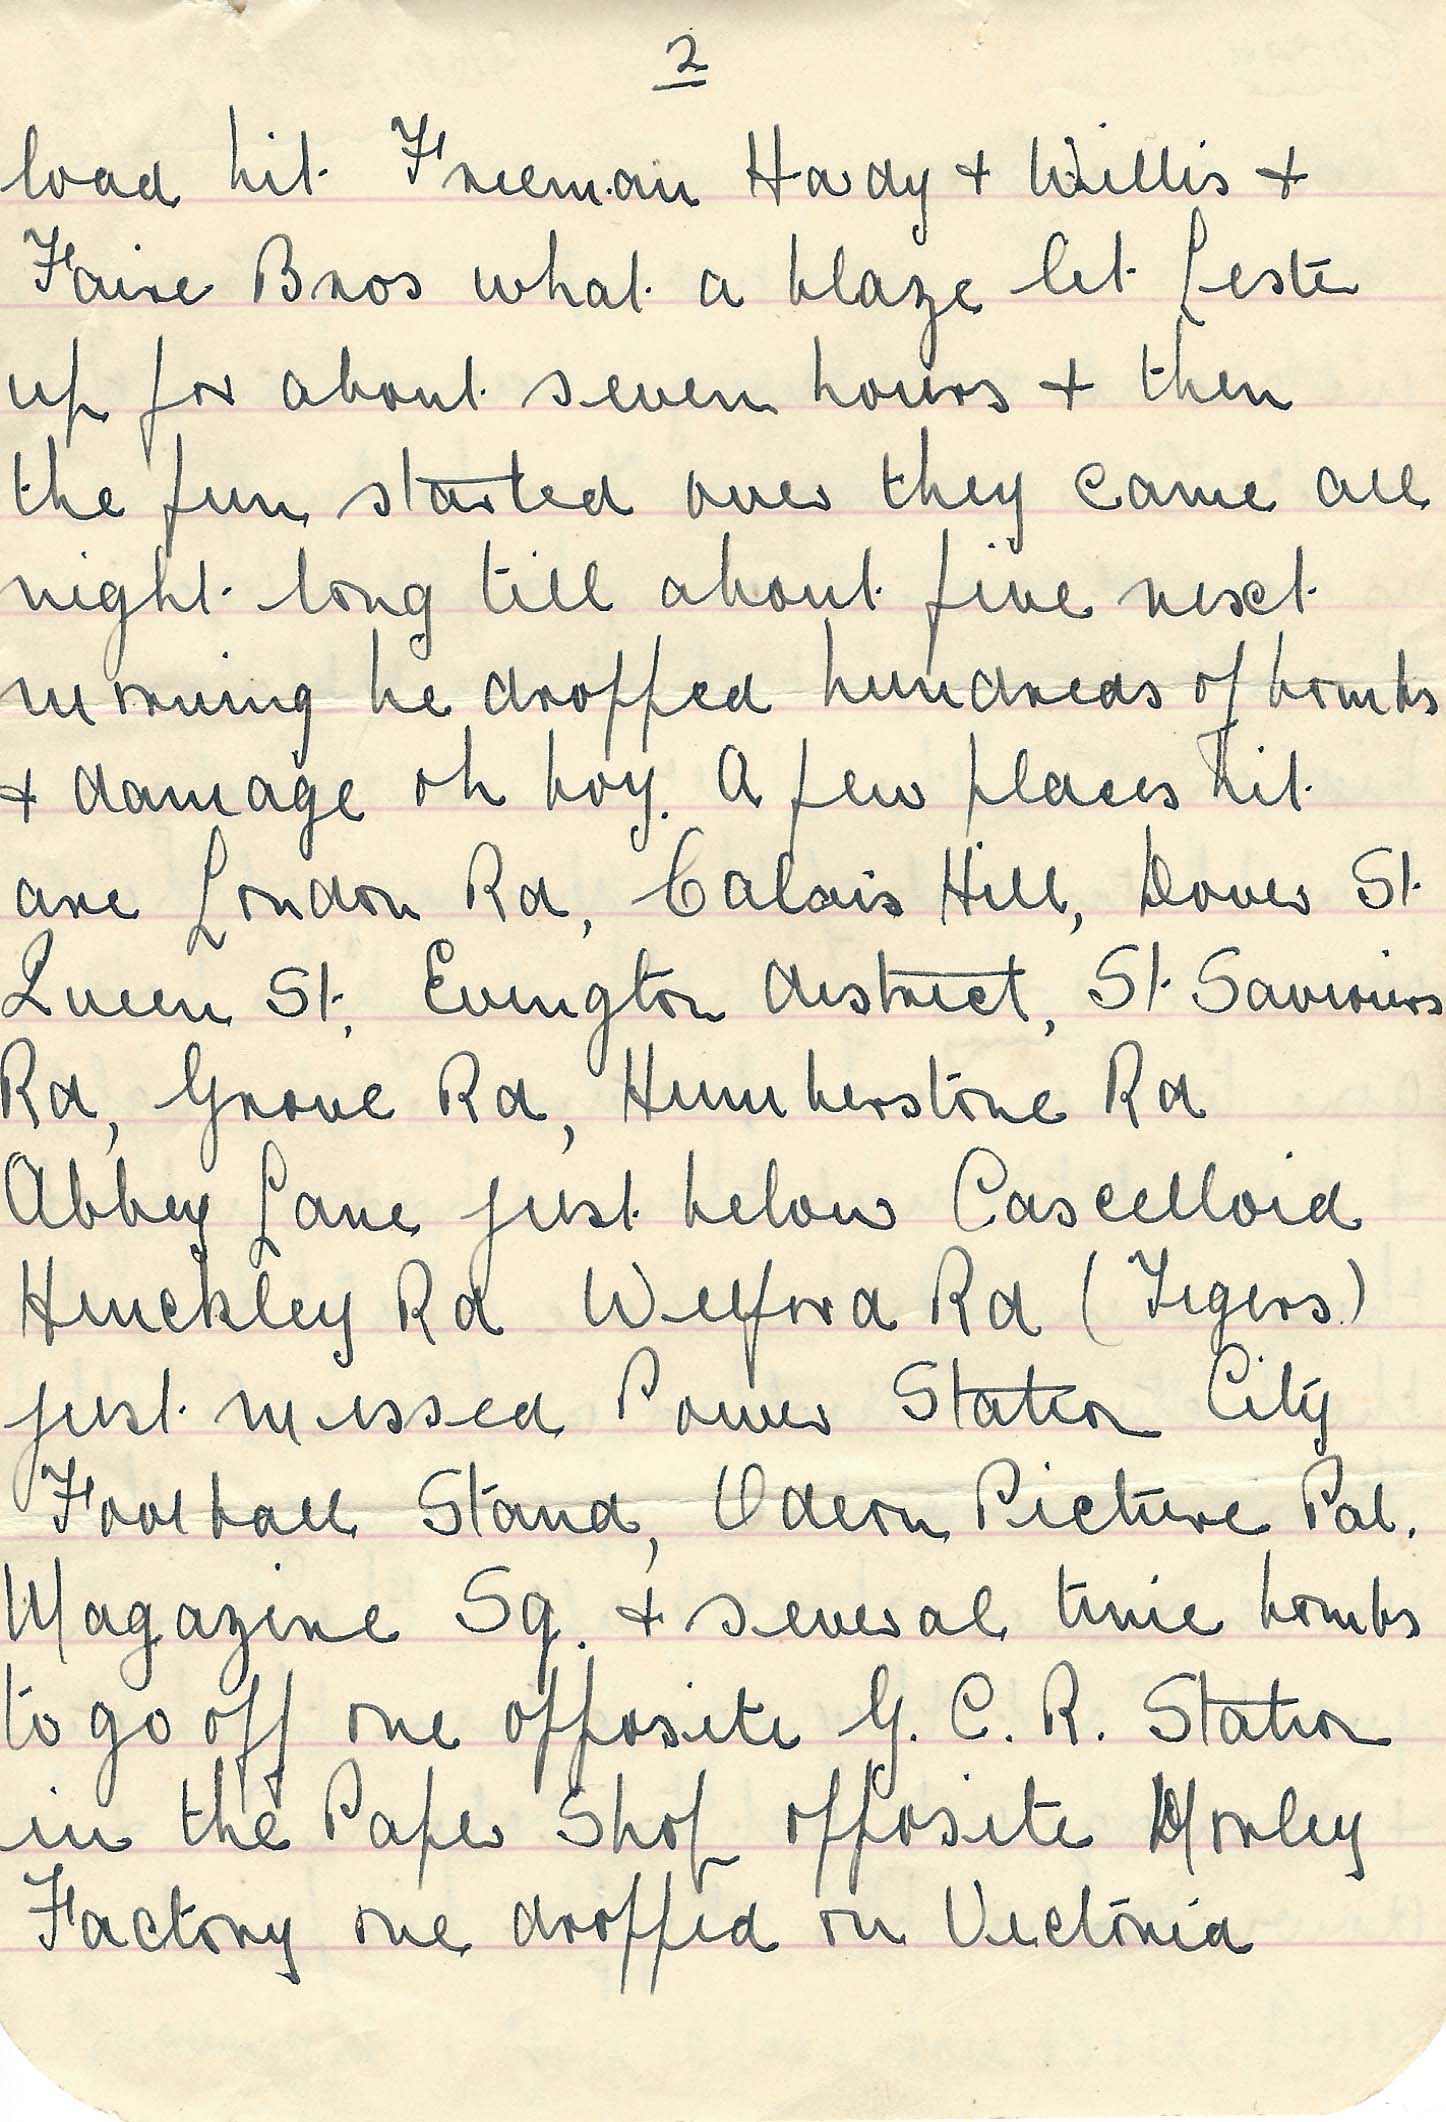 2
load hit Freeman Hardy + Willis +
Faire Bros what a blaze lit Leste
up for about seven hours + then
the fun started over they came all
night long till about five next
morning he dropped hundreds of bombs
+ damage oh boy. A few places hit
are London Rd, Calais Hill, Dover St
Queen St, Evington district, St Saviours
Rd, Grove Rd, Humberstone Rd
Abbey Lane just below Cascelloid
Hinckley Rd Welford Rd (Tigers)
just missed Power Station City
Football Stand, Odeon Picture Pal.
Magazine Sq. + several time bombs
to go off one opposite G. C. R. Station
in the Paper Shop opposite Morley
Factory one dropped on Victoria